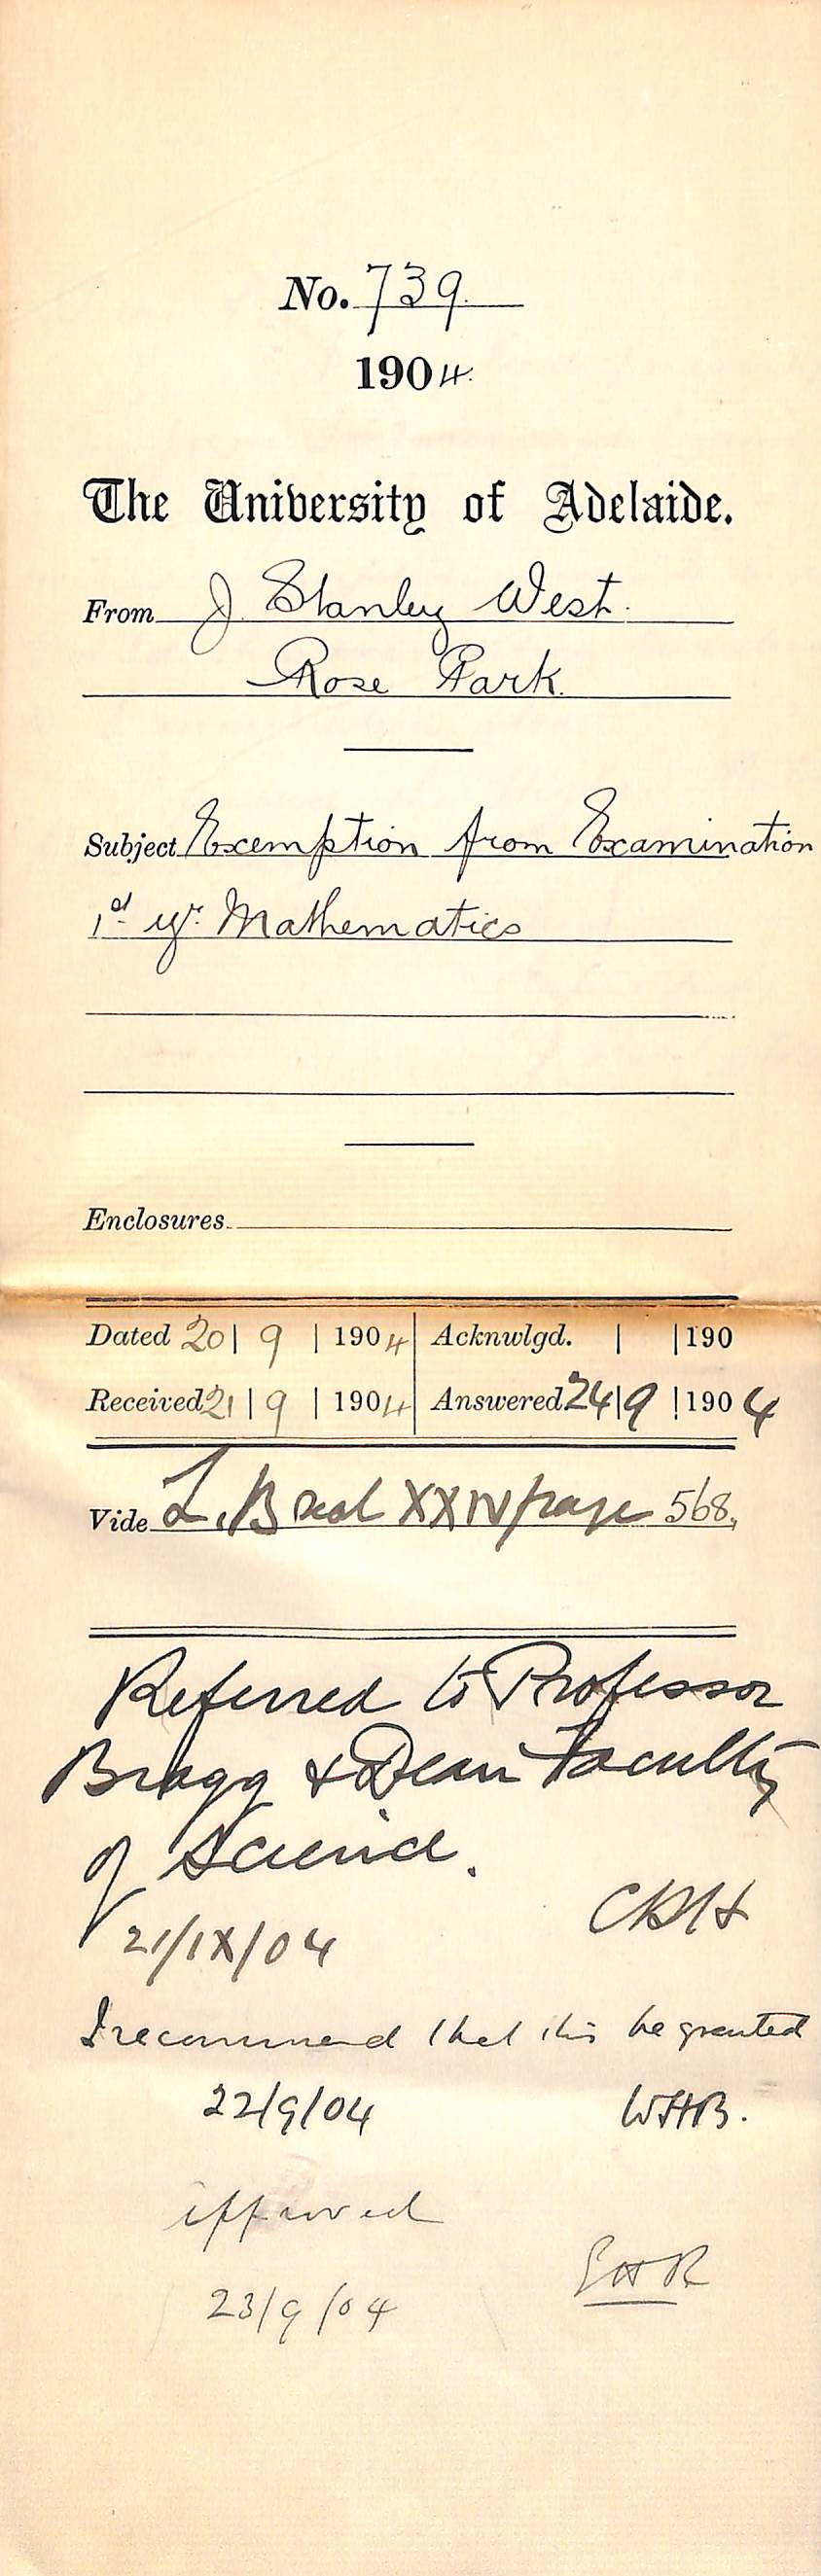 No. 739.
1904.
The University of Adelaide.
From J. Stanley West.
Rose Park.
Subject Exemption from Examination
1st yr. Mathematics
Enclosures
Dated 20 | 9 | 1904 | Acknwlgd. | | 190
Received 21 | 9 | 1904 | Answered 24 | 9 | 1904
Vide L. B XXIV page 568.
Referred to Professor
Bragg & Dean Faculty
of Science.
CRH
21/IX/04
I recommend that this be granted
22/9/04 WHB.
approved
EHR
23/9/04